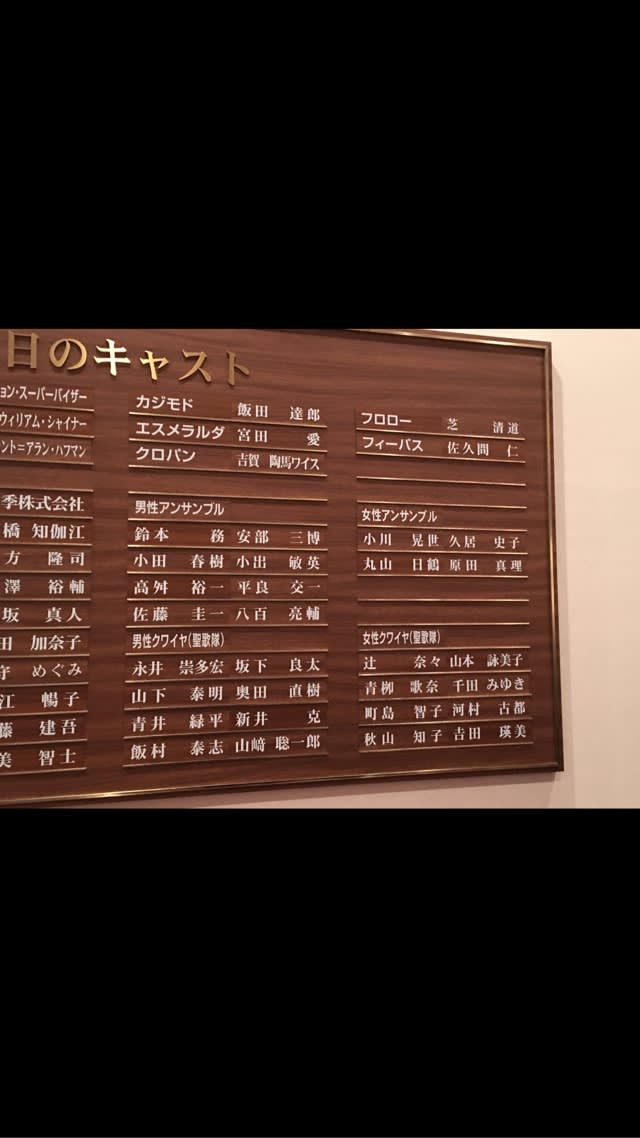 日のキャスト
ョン・スーパーバイザー
ウィリアム・シャイナー
ント＝アラン・ハフマン
季株式会社
橋 知伽江
方 隆司
澤 裕輔
坂 真人
田 加奈子
守 めぐみ
江 暢子
藤 建吾
美 智士
カジモド 飯田 達郎
エスメラルダ 宮田 愛
クロパン 吉賀 陶馬ワイス
男性アンサンブル
鈴本 務 安部 三博
小田 春樹 小出 敏英
高舛 裕一 平良 交一
佐藤 圭一 八百 亮輔
男性クワイヤ(聖歌隊)
永井 崇多宏 坂下 良太
山下 泰明 奥田 直樹
青井 緑平 新井 克
飯村 泰志 山﨑 聡一郎
フロロー 芝 清道
フィーバス 佐久間 仁
女性アンサンブル
小川 晃世 久居 史子
丸山 日鶴 原田 真理
女性クワイヤ(聖歌隊)
辻 奈々 山本 詠美子
青栁 歌奈 千田 みゆき
町島 智子 河村 古都
秋山 知子 吉田 瑛美